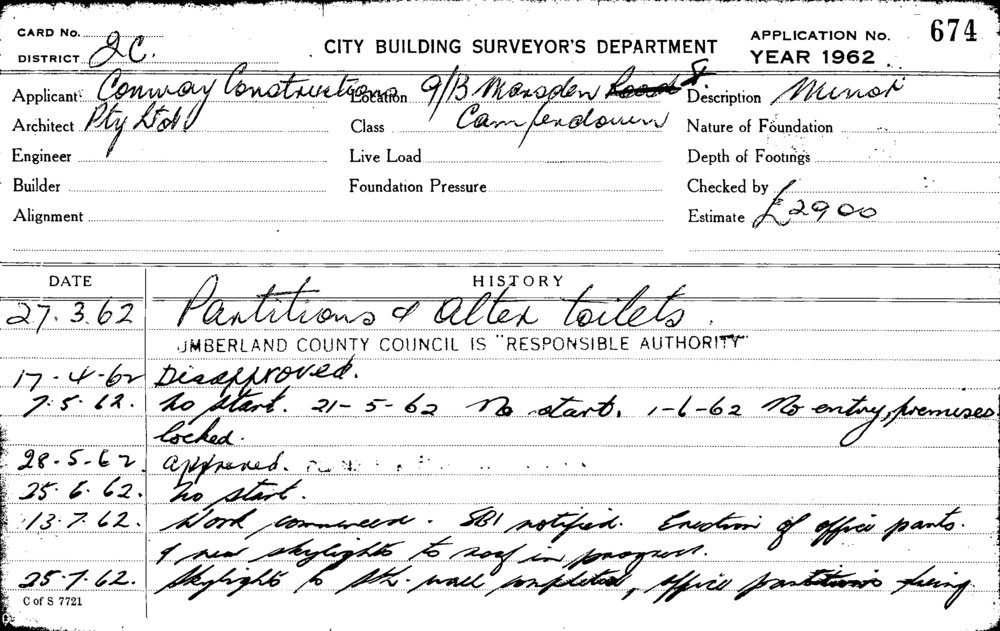 CARD No.
DISTRICT J.C.
CITY BUILDING SURVEYOR'S DEPARTMENT
APPLICATION No. 674
YEAR 1962
Applicant Conway Constructions Location 9/13 Marsden Road St. Description Minor
Architect Pty Ltd Class Camperdown Nature of Foundation
Engineer Live Load Depth of Footings
Builder Foundation Pressure Checked by
Alignment Estimate £2900
DATE HISTORY
27.3.62 Partitions & alter toilets.
UMBERLAND COUNTY COUNCIL IS "RESPONSIBLE AUTHORITY"
17-4-62 Disapproved.
7.5.62. No start. 21-5-62 No start. 1-6-62 No entry, premises
locked.
28.5.62. approved.
25.6.62. No start.
13.7.62. Work commenced. SBI notified. Erection of office parts.
& new skylights to roof in progress.
25.7.62. Skylights to sth. wall completed, office partitions being
C of S 7721